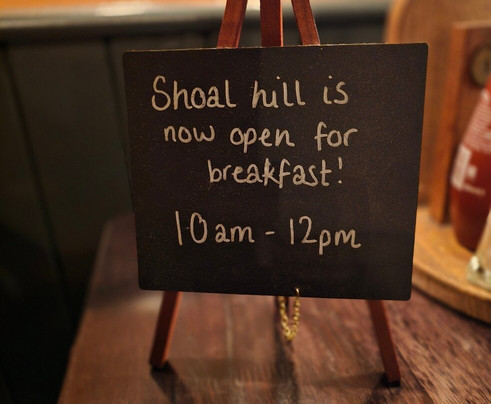 Shoal hill is
now open for
breakfast!
10am - 12pm